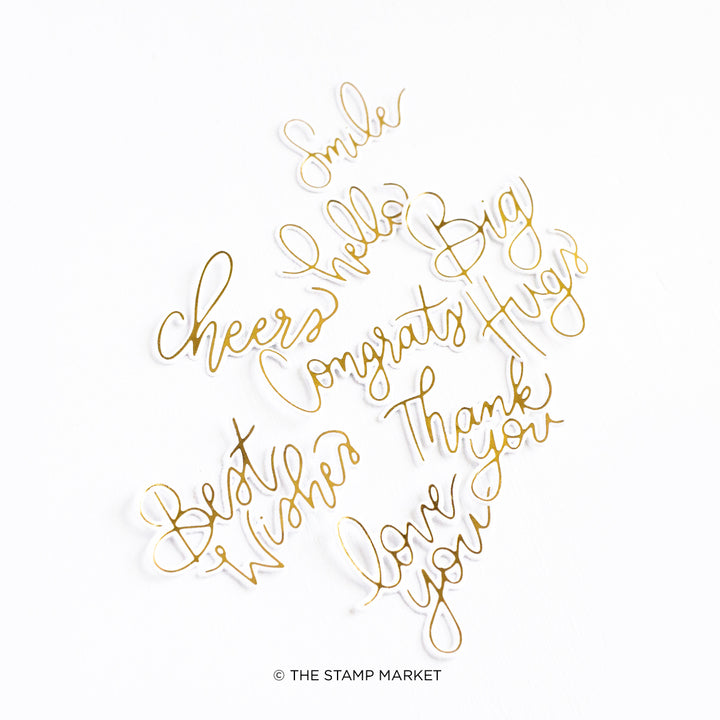 Smile
hello
Big
Hugs
cheers
Congrats
Thank
you
Best
Wishes
love
you
© THE STAMP MARKET